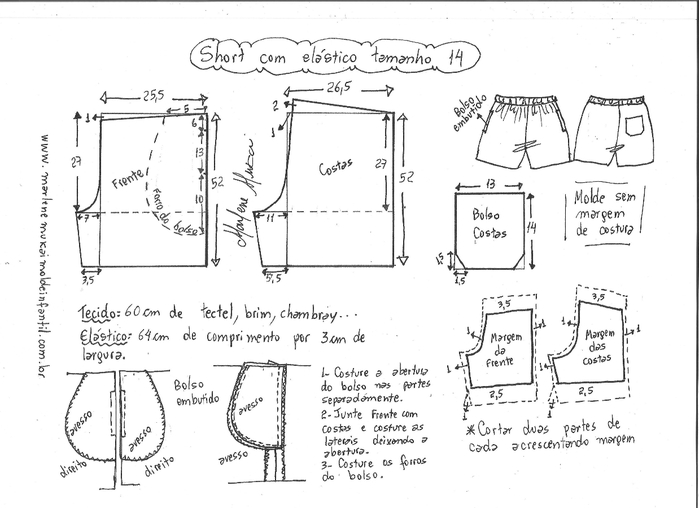 Short com elástico tamanho 14
25,5
5
1
6
13
27
Frente
Forro do bolso
10
52
7
3,5
www.marlenemukaimoldeinfantil.com.br
26,5
2
1
Costas
27
52
11
5,5
Marlene Mukai
Bolso
embutido
13
Bolso
Costas
14
1,5
1,5
Molde sem
margem
de costura
Tecido: 60 cm de tectel, brim, chambray...
Elástico: 64 cm de comprimento por 3 cm de
largura.
Bolso
embutido
avesso
avesso
direito
direito
avesso
avesso
1- Costure a abertura
do bolso nas partes
separadamente.
2- Junte Frente com
costas e costure as
laterais deixando a
abertura.
3- Costure os forros
do bolso.
3,5
1
1
Margem
da
Frente
2,5
1
3,5
1
1
Margem
das
Costas
2,5
1
* Cortar duas partes de
cada acrescentando margem